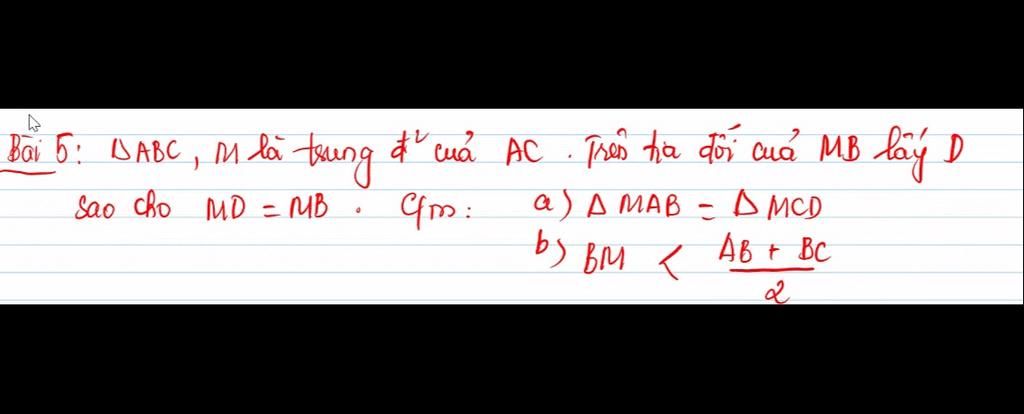 Bài 5: ΔABC, M là trung đ² của AC. Trên tia đối của MB lấy D
sao cho MD = MB. C/m: a) Δ MAB = Δ MCD
b) BM < \frac{AB + BC}{2}